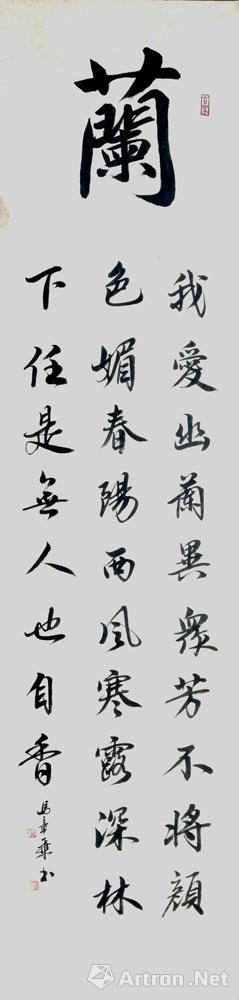 蘭
我愛幽蘭異眾芳不將顏
色媚春陽西風寒露深林
下任是無人也自香
書
Artron.Net